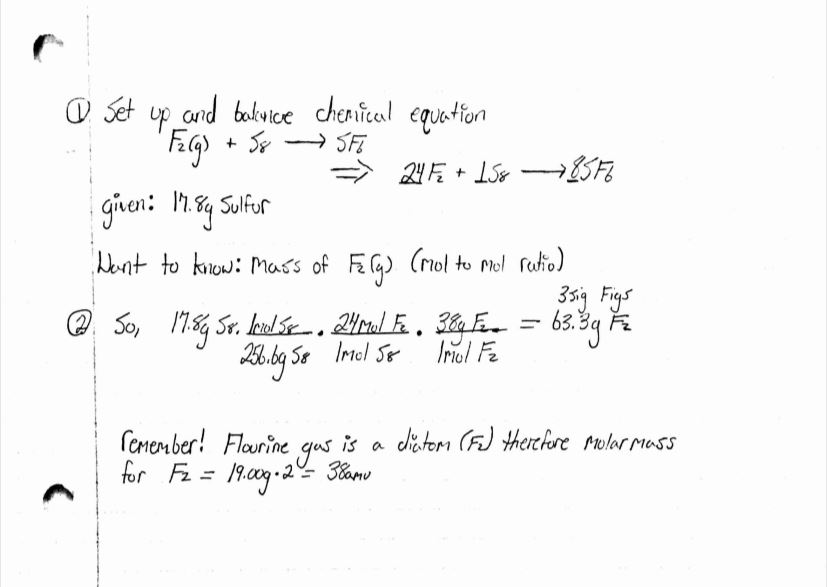 ① Set up and balance chemical equation
F₂(g) + S₈ → SF₆
⇒ 24F₂ + 1S₈ → 8SF₆
given: 17.8g Sulfur
Want to know: Mass of F₂(g) (mol to mol ratio)
3 sig Figs
② So, 17.8g S₈ · 1mol S₈ / 256.6g S₈ · 24Mol F₂ / 1mol S₈ · 38g F₂ / 1mol F₂ = 63.3g F₂
remember! Flourine gas is a diatom (F₂) therefore Molar mass
for F₂ = 19.00g · 2 = 38amu